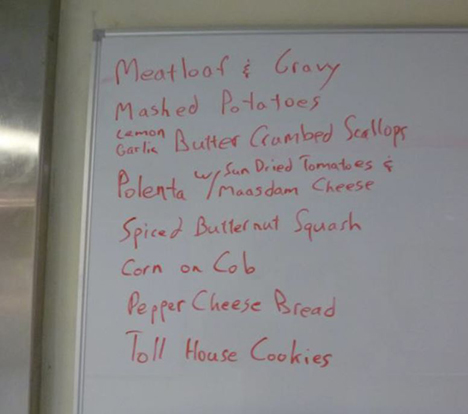 Meatloaf & Gravy
Mashed Potatoes
Lemon
Garlic Butter Crumbed Scallops
Polenta w/ Sun Dried Tomatoes &
Maasdam Cheese
Spiced Butternut Squash
Corn on Cob
Pepper Cheese Bread
Toll House Cookies